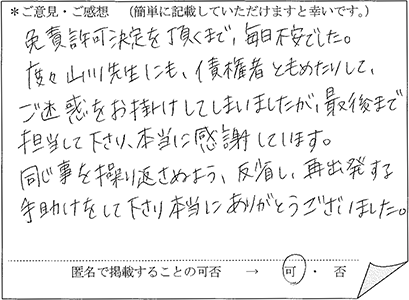 ＊ご意見・ご感想　（簡単に記載していただけますと幸いです。）
免責許可決定を頂くまで、毎日不安でした。
度々山川先生にも、債権者ともめたりして、
ご迷惑をお掛けしてしまいましたが、最後まで
担当して下さり、本当に感謝しています。
同じ事を繰り返さぬよう、反省し、再出発する
手助けをして下さり本当にありがとうございました。
匿名で掲載することの可否　→　可・否